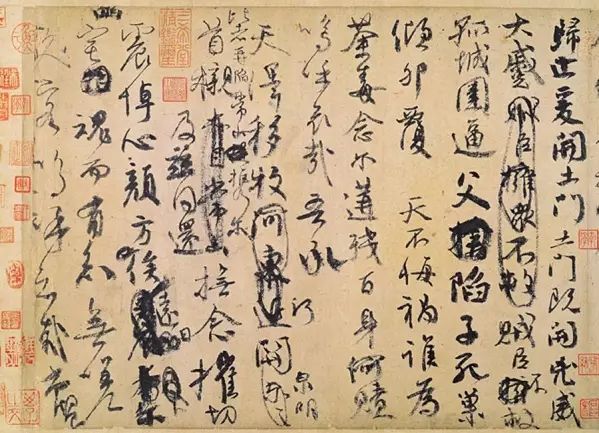 歸止爰開土門土門既開凶威
大蹙賊臣擁眾不救賊臣不救
孤城圍逼父陷子死巢
傾卵覆天不悔禍誰為
荼毒念爾遘殘百身何贖
嗚呼哀哉吾承
天澤移牧河關泉明
比者再陷常山攜爾
首櫬亦自常山撫念摧切
及茲同還
震悼心顏方俟遠日
宅魂而有知無嗟
久客嗚呼哀哉尚饗